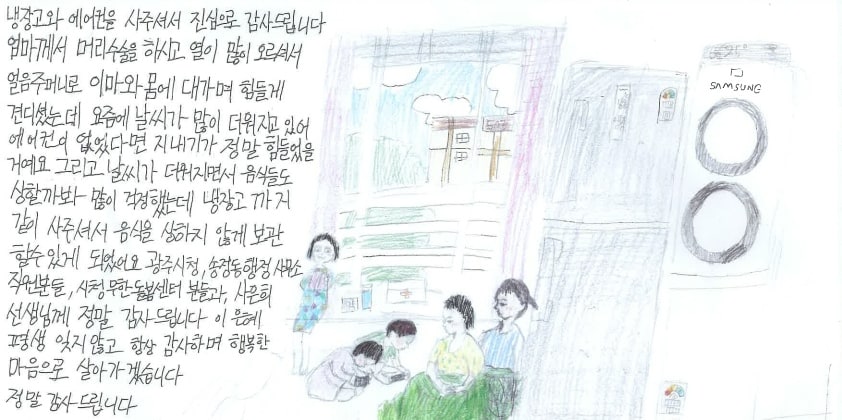 냉장고와 에어컨을 사주셔서 진심으로 감사드립니다
엄마께서 머리수술을 하시고 열이 많이 오르셔서
얼음주머니로 이마와 몸에 대가며 힘들게
견디셨는데 요즘에 날씨가 많이 더워지고 있어
에어컨이 없었다면 지내기가 정말 힘들었을
거예요 그리고 날씨가 더워지면서 음식들도
상할까봐 많이 걱정했는데 냉장고까지
같이 사주셔서 음식을 상하지 않게 보관
할수있게 되었어요 광주시청, 송정동행정 사무소
직원분들, 시청 무한돌봄센터 분들과, 사은희
선생님께 정말 감사드립니다 이 은혜
평생 잊지않고 항상 감사하며 행복한
마음으로 살아가겠습니다
정말 감사드립니다
SAMSUNG